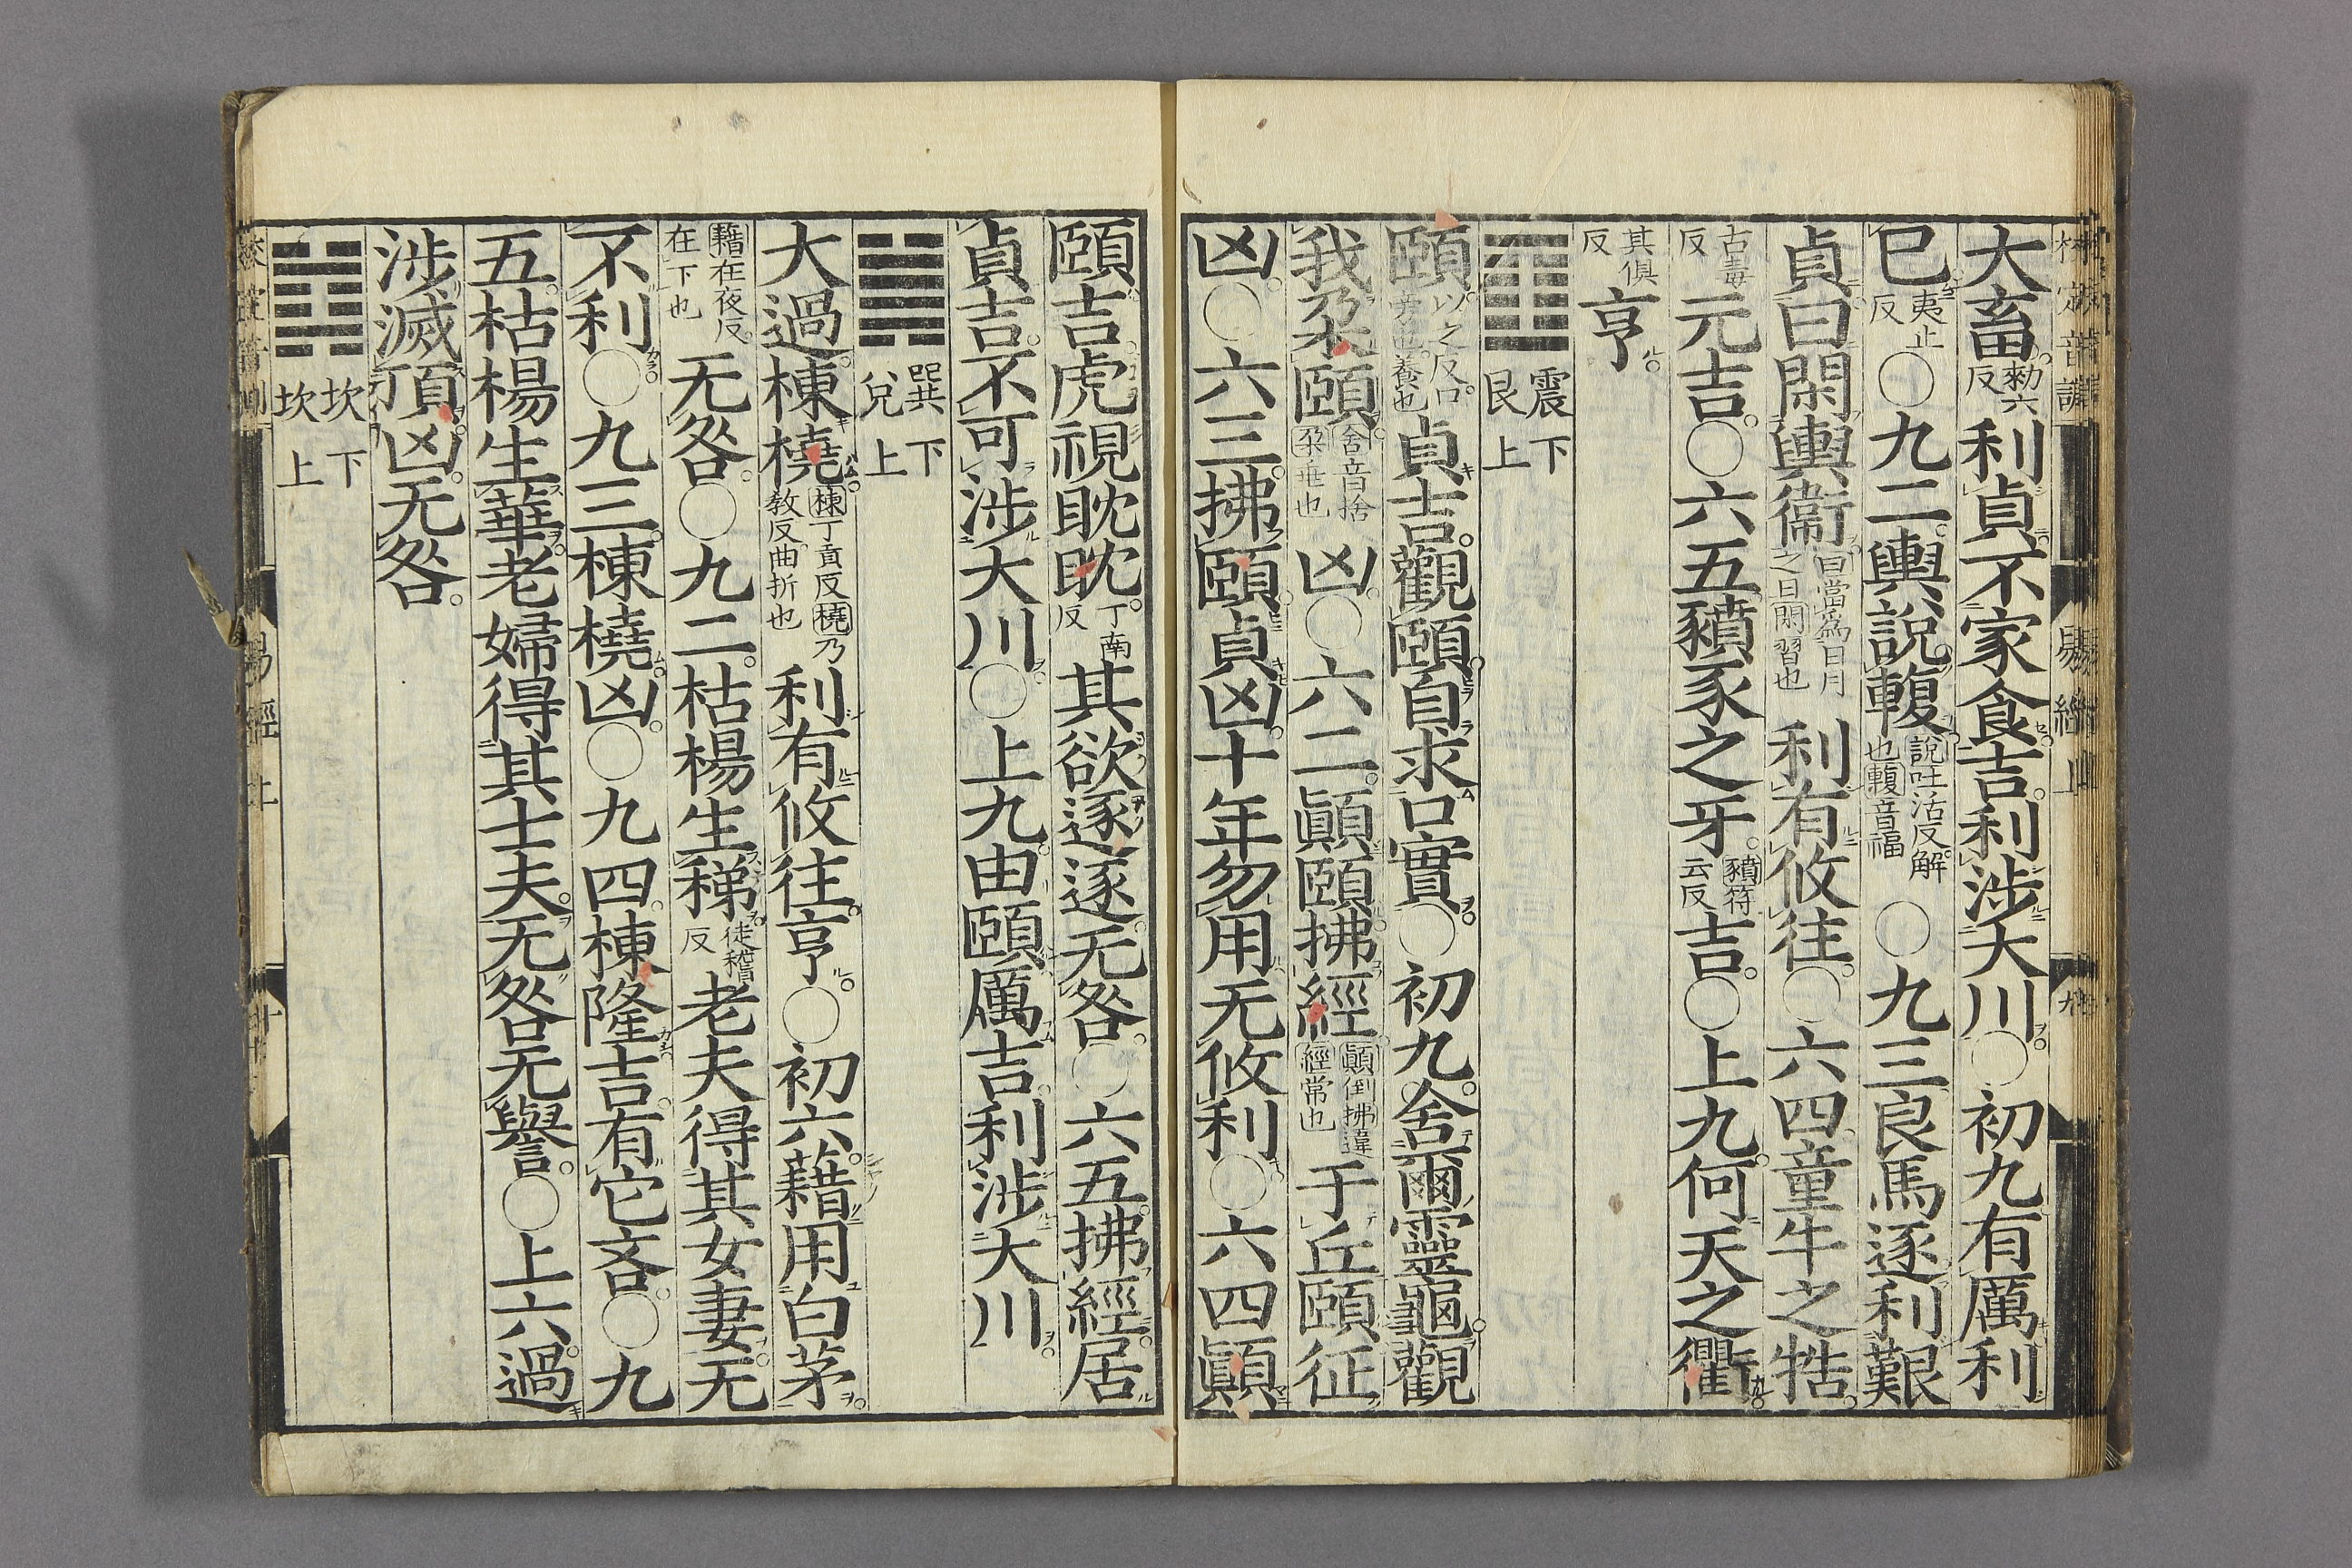 大畜勅六反利貞不家食吉利涉大川〇初九有厲利
已夷止反〇九二輿說輹說吐活反解也輹音福〇九三良馬逐利艱
貞曰閑輿衞曰當爲日月之日閑習也利有攸往〇六四童牛之牿
古毒反元吉〇六五豶豕之牙豶符云反吉〇上九何天之衢
其俱反亨
䷚震下艮上
頤以之反口旁也養也貞吉觀頤自求口實〇初九舍爾靈龜觀
我朶頤舍音捨朶垂也凶〇六二顚頤拂經顚倒拂違經常也于丘頤征
凶〇六三拂頤貞凶十年勿用无攸利〇六四顚
頤吉虎視眈眈丁南反其欲逐逐无咎〇六五拂經居
貞吉不可涉大川〇上九由頤厲吉利涉大川
䷛巽下兌上
大過棟橈棟丁貢反橈乃敎反曲折也利有攸往亨〇初六藉用白茅
藉在夜反在下也无咎〇九二枯楊生稊徒稽反老夫得其女妻无
不利〇九三棟橈凶〇九四棟隆吉有它吝〇九
五枯楊生華老婦得其士夫无咎无譽〇上六過
涉滅頂凶无咎
䷜坎下坎上
易經上
易經上